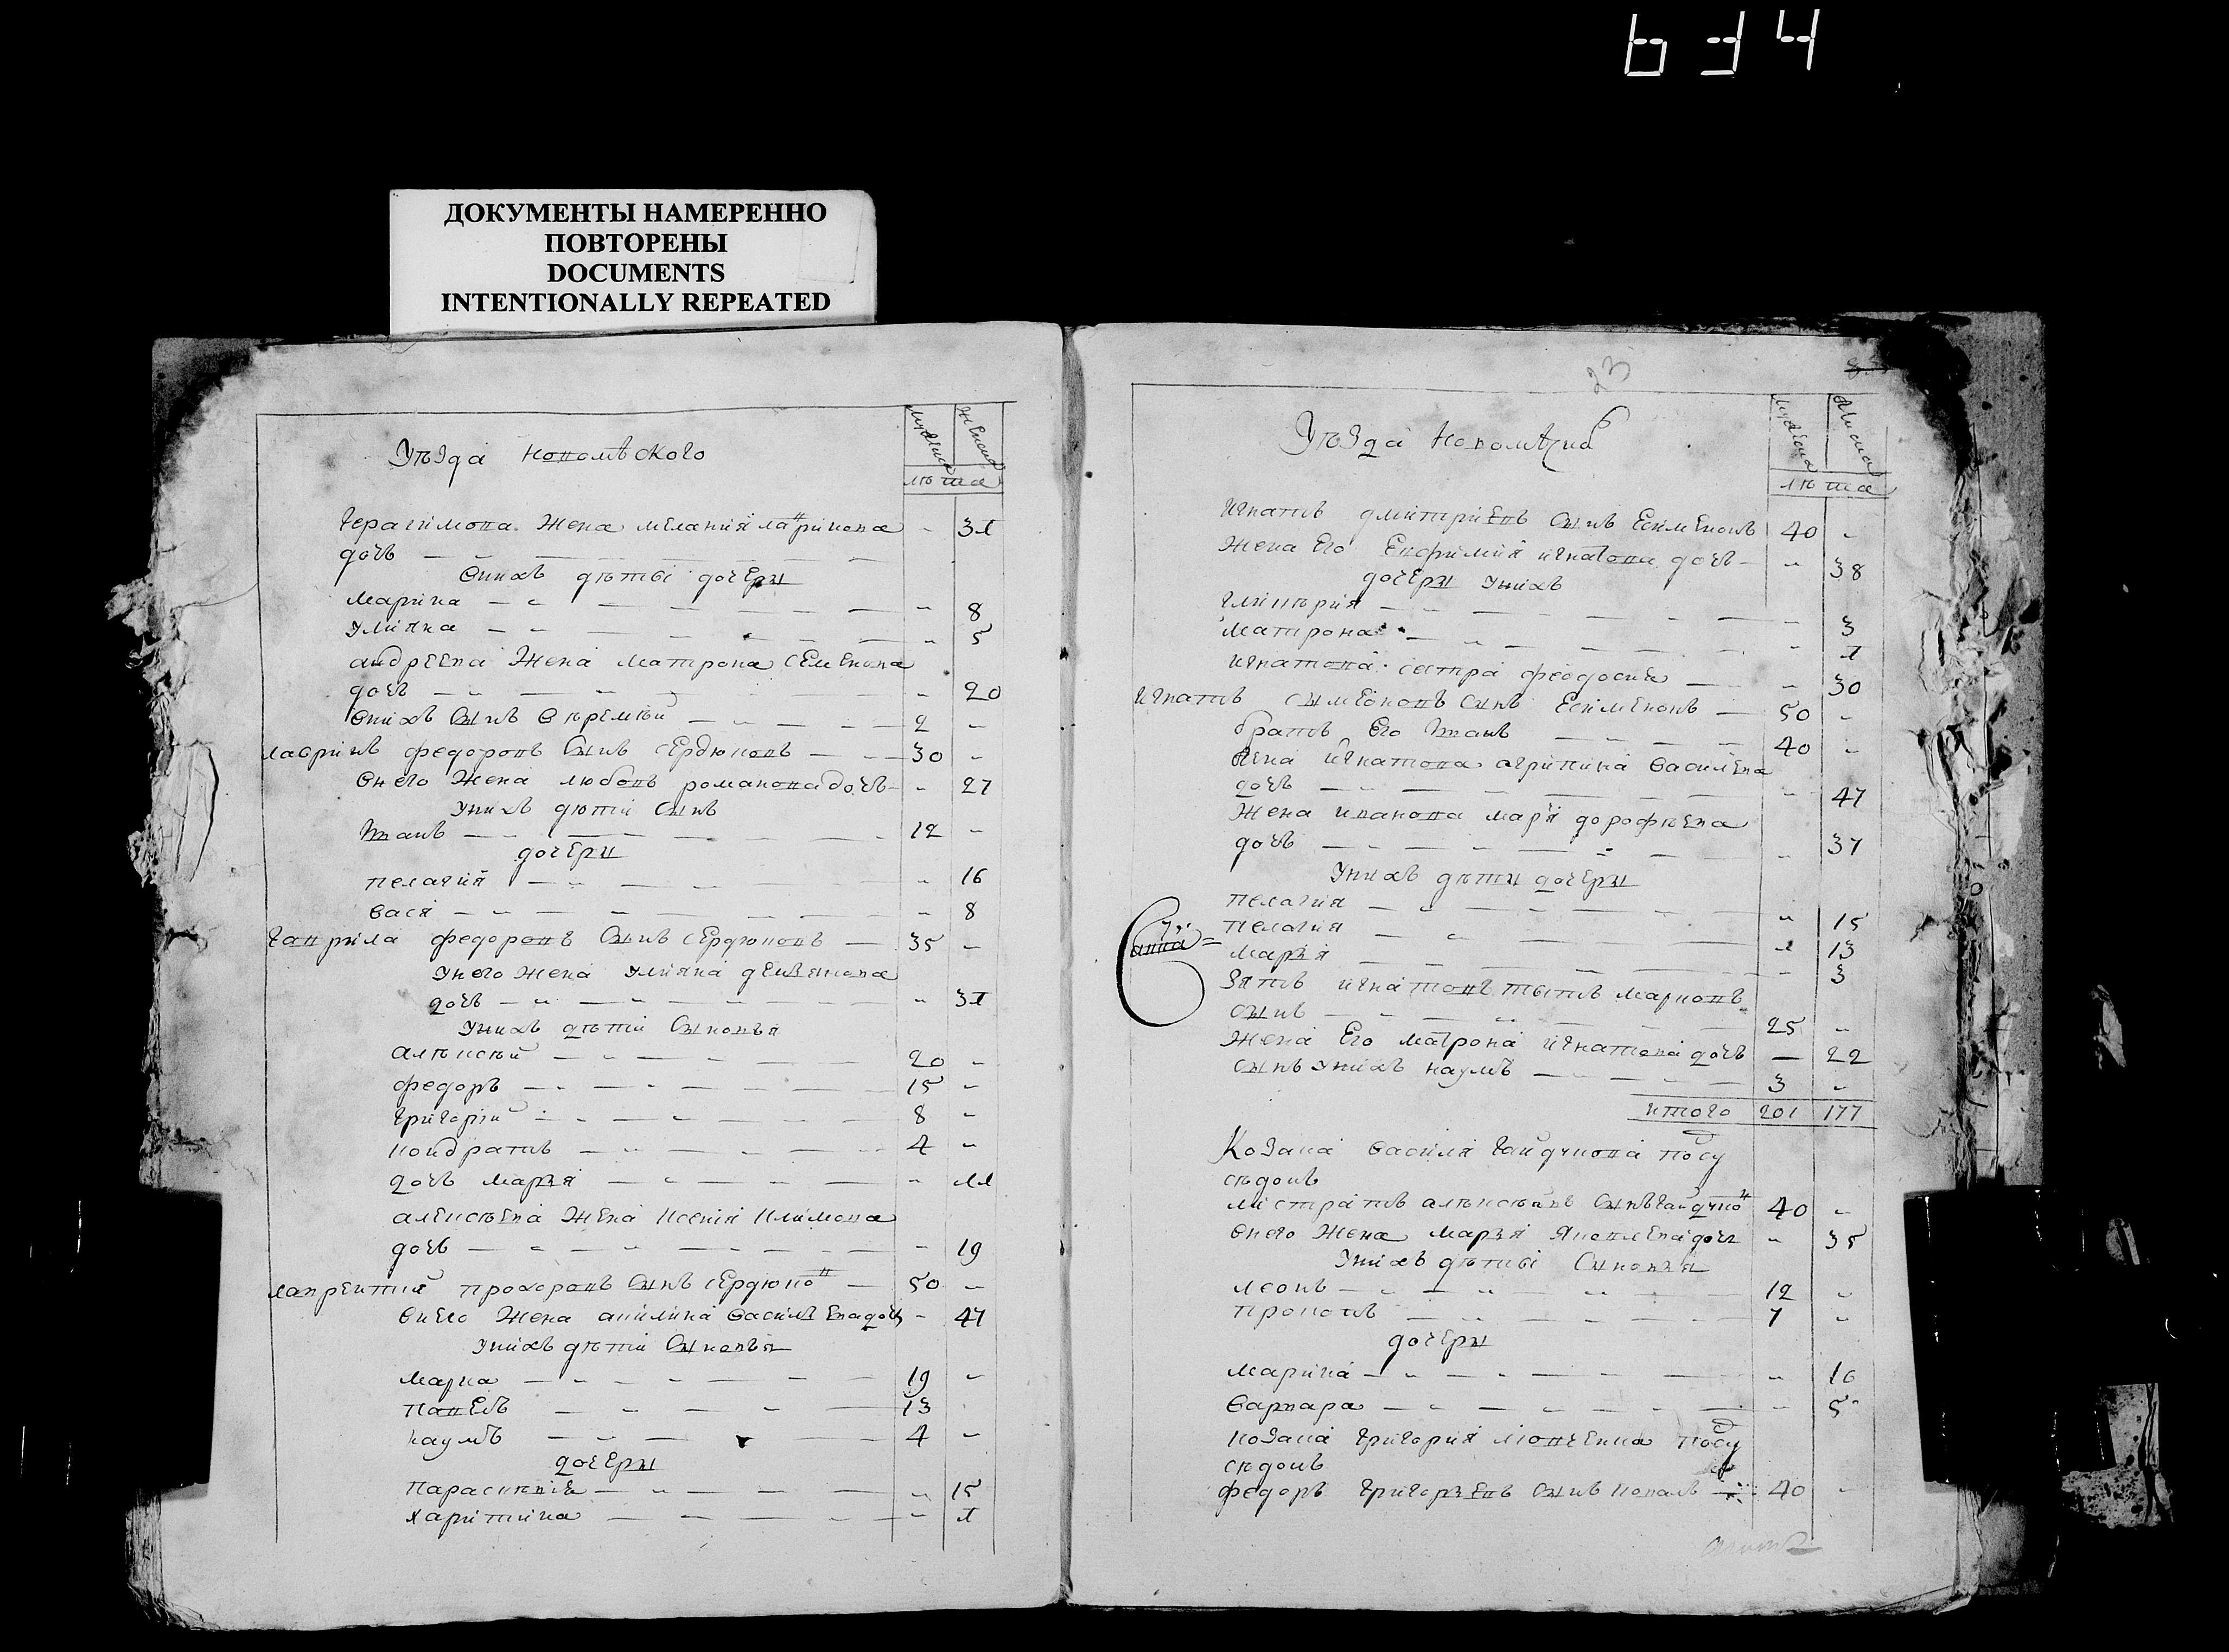 634
ДОКУМЕНТЫ НАМЕРЕННО
ПОВТОРЕНЫ
DOCUMENTS
INTENTIONALLY REPEATED
Уѣзда
мужеска женска
лѣта
Герасимова Жена мѣланія лавринова - 31
дочь
Внихъ дѣтѣі дочеры
марина - 8
Уліяна - 5
андрѣева Жена матрона семенова
дочь - 20
Внихъ сынъ 2 -
лавринъ федоровъ сынъ сердюковъ 30 -
Внего Жена любовь романова дочь - 27
Унихъ дѣти сынъ
Іванъ 12 -
дочеры
пелагія - 16
Вася - 8
гаврила федоровъ сынъ сердюковъ 35 -
Унего Жена Уліяна
дочь - 31
Унихъ дѣти сыновья
алѣксѣй 20 -
федоръ 15 -
григорій 8 -
кондратъ 4 -
дочь марья - 11
алексѣева Жена ксенія климова
дочь - 19
лаврентій прохоровъ сынъ сердюковъ 50 -
Внего Жена акилина василѣева дочь - 47
Унихъ дѣти сыновья
марка 19 -
павелъ 13
наумъ 4 -
дочеры
парасковія - 15
харитина - 1
23
Уѣзда
мужеска женска
лѣта
игнатъ дмитріевъ сынъ Есименковъ 40 -
Жена Его Евфимія игнатова дочь - 38
дочеры Унихъ
гликѣрия - 3
матрона - 1
игнатова сестра феодосия - 30
игнатъ симеоновъ сынъ Есименковъ 50 -
братъ Его Іванъ 40 -
Жена игнатова агрипина василева
дочь - 47
Жена иванова марія дорофѣева
дочь - 37
Унихъ дѣты дочеры
пелагия - 15
пелагия - 13
анна
марья - 3
Зять игнатовъ титъ марковъ
сынъ 25 -
Жена Его матрона игнатова дочь - 22
сынъ Унихъ наумъ 3 -
итого 201 177
Козака василя гайдукова подсу
сѣдокъ
алѣксѣевъ сынъ гайдуковъ 40 -
Внего Жена марья яковлева дочь - 35
Унихъ дѣтѣі сыновья
леонъ 12 -
прокопъ 7 -
дочеры
марина - 16
варвара - 5
козака григория подсу
сѣдокъ
федоръ григорьевъ сынъ коваль 40 -